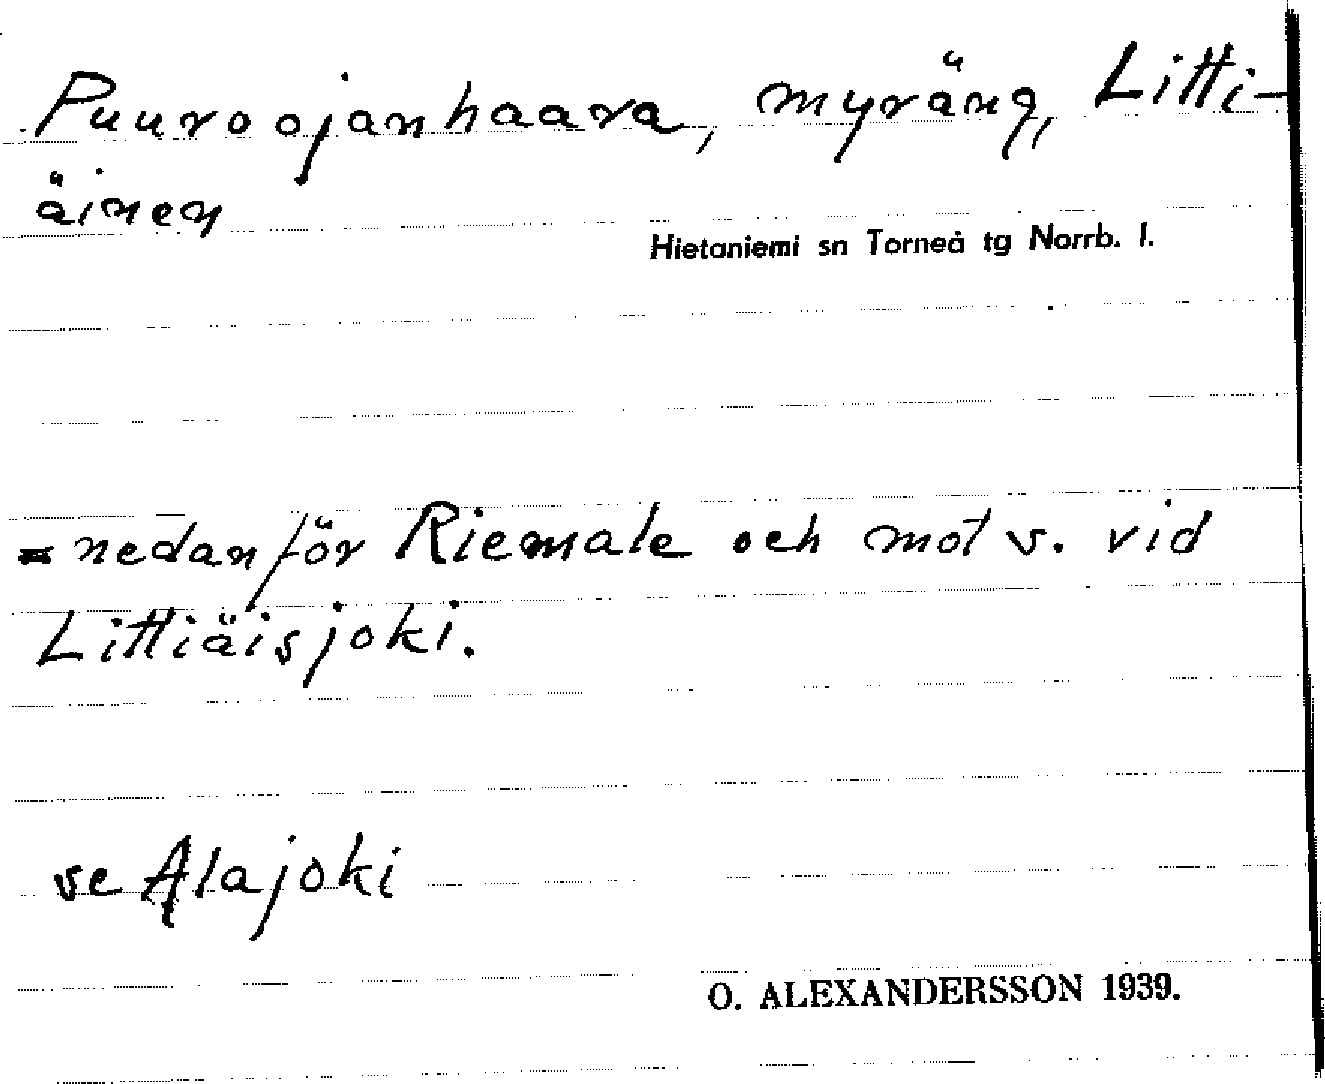 Puuroojanhaara, myräng, Litti-
äinen
Hietaniemi sn Torneå tg Norrb. l.
= nedanför Riemale och mot v. vid
Littiäisjoki.
se Alajoki
O. ALEXANDERSSON 1939.